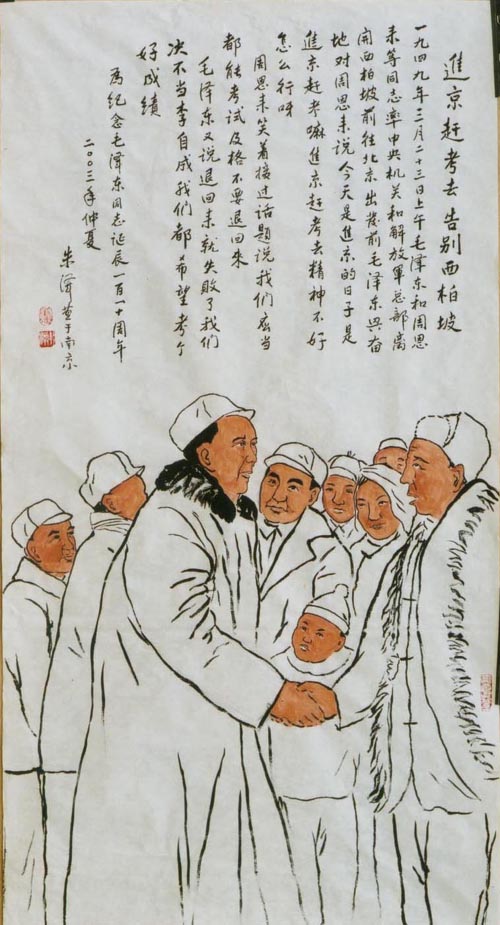 進京赶考去 告别西柏坡
一九四九年三月二十三日上午毛泽东和周恩
来等同志率中央机关和解放軍总部离
開西柏坡前往北京出發前毛泽东興奋
地对周恩来说今天是進京的日子是
進京赶考嘛進京赶考去精神不好
怎么行呀
周恩来笑着接过话题说我们应当
都能考试及格不要退回来
毛泽东又说退回来就失败了我们
决不当李自成我们都希望考个
好成绩
为纪念毛泽东同志诞辰一百一十周年
二〇〇三年仲夏
朱 于南京